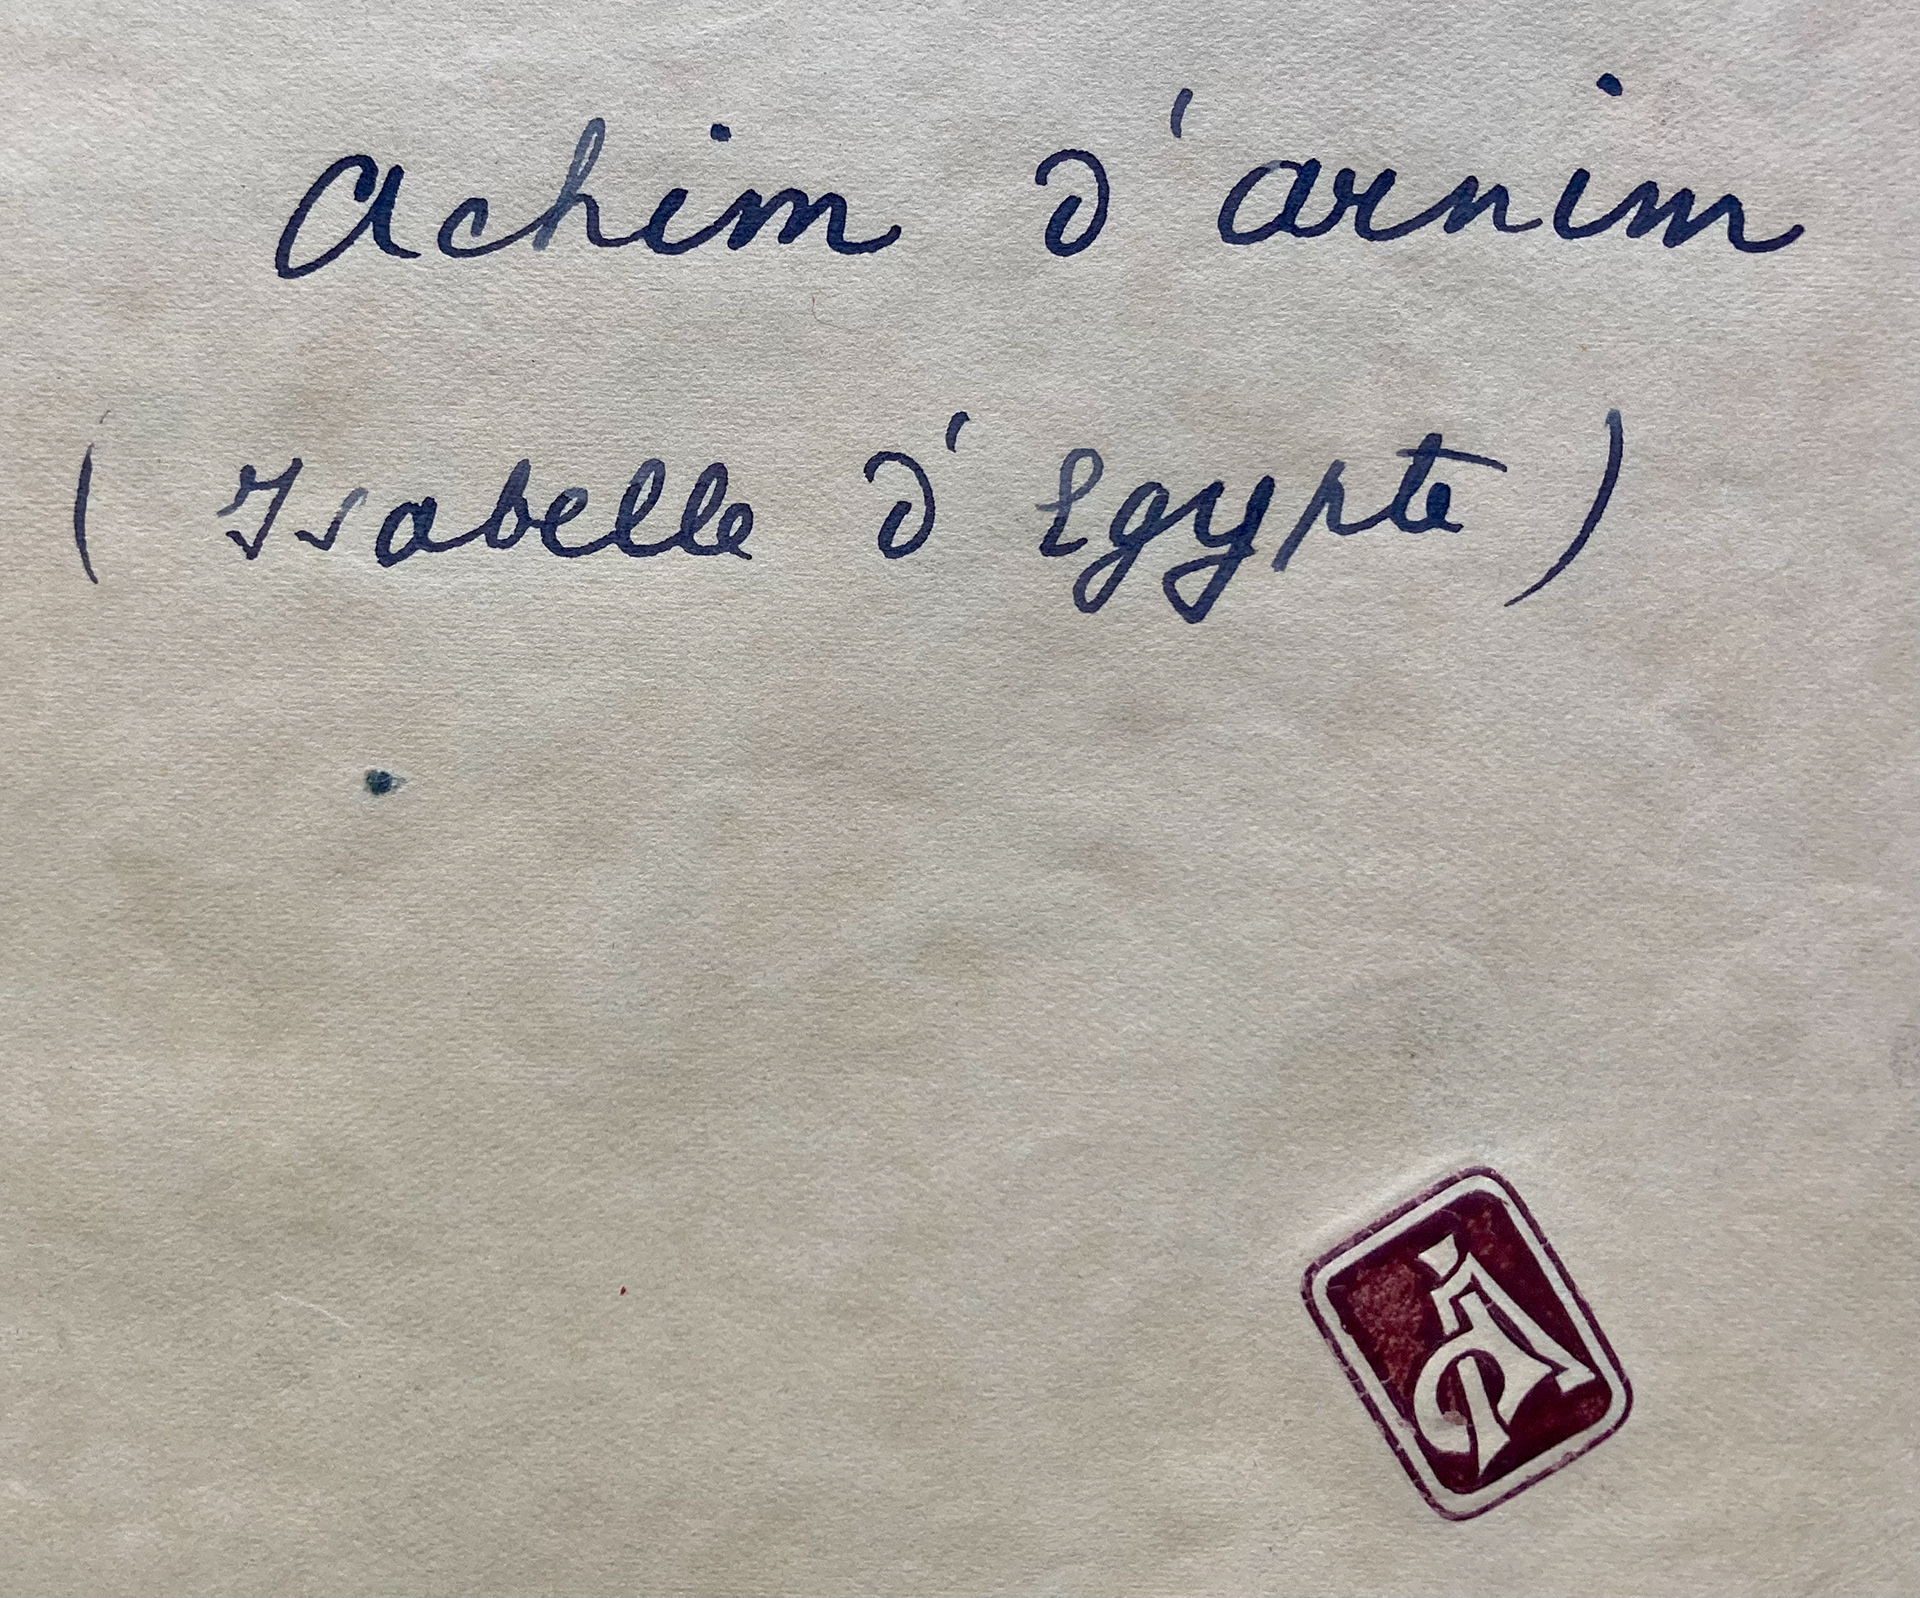 Achim d'Arnim
(Isabelle d'Egypte)